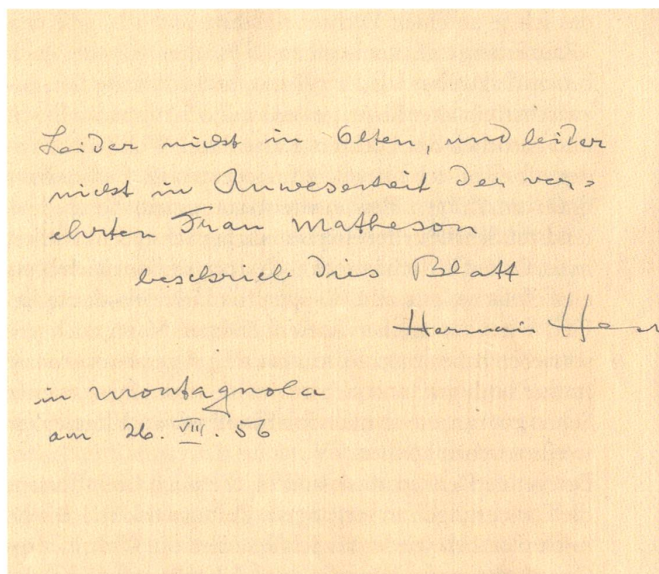 Leider nicht in Olten, und leider
nicht in Anwesenheit der ver=
ehrten Frau Matheson
beschrieb dies Blatt
Hermann Hesse
in Montagnola
am 26. VIII. 56